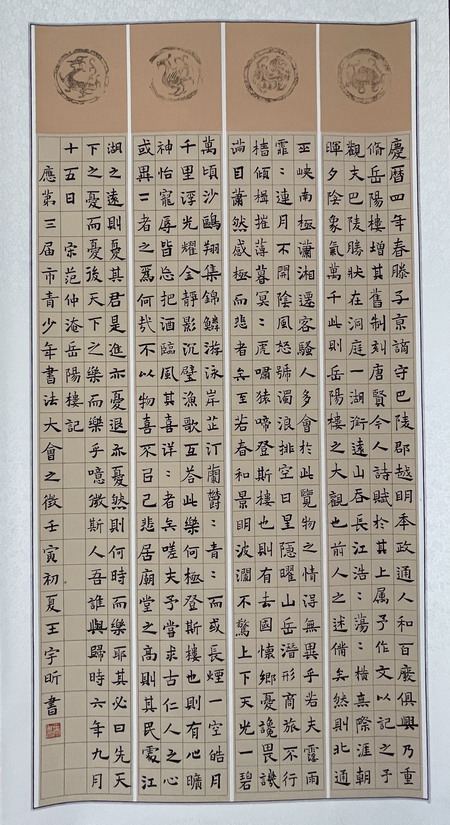 慶曆四年春滕子京謫守巴陵郡越明年政通人和百廢俱興乃重
脩岳陽樓增其舊制刻唐賢今人詩賦於其上属予作文以記之予
觀夫巴陵勝狀在洞庭一湖銜遠山吞長江浩：蕩：橫無際涯朝
暉夕陰象氣萬千此則岳陽樓之大觀也前人之述備矣然則北通
巫峽南極瀟湘遷客騷人多會於此覽物之情得無異乎若夫霪雨
霏：連月不開陰風怒號濁浪排空日星隱曜山岳潛形商旅不行
檣傾楫摧薄暮冥：虎嘯猿啼登斯樓也則有去國懷鄉憂讒畏譏
滿目蕭然感極而悲者矣至若春和景明波瀾不驚上下天光一碧
萬頃沙鷗翔集錦鱗游泳岸芷汀蘭鬱：青：而或長煙一空皓月
千里浮光耀金靜影沉璧漁歌互答此樂何極登斯樓也則有心曠
神怡寵辱皆忘把酒臨風其喜洋：者矣嗟夫予嘗求古仁人之心
或異二者之為何哉不以物喜不以己悲居廟堂之高則其民處江
湖之遠則憂其君是進亦憂退亦憂然則何時而樂耶其必曰先天
下之憂而憂後天下之樂而樂乎噫微斯人吾誰與歸時六年九月
十五日 宋范仲淹岳陽樓記
應第三屆市青少年書法大會之徵壬寅初夏王宇昕書